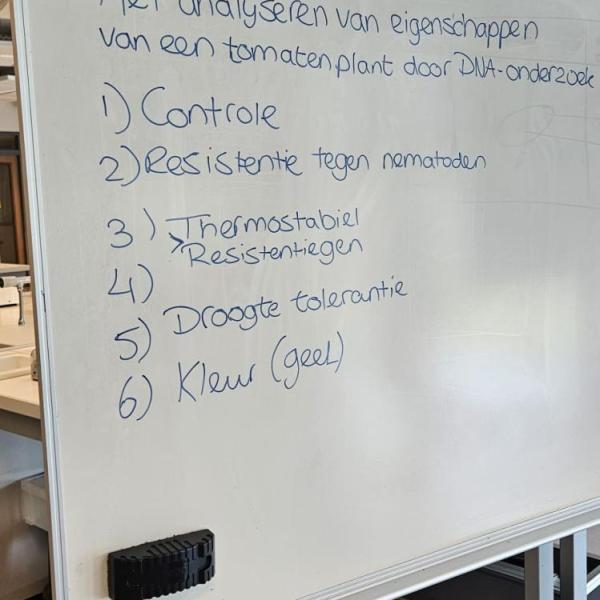 Het analyseren van eigenschappen
van een tomatenplant door DNA-onderzoek
1) Controle
2) Resistentie tegen nematoden
3) Thermostabiel
> Resistentiegen
4)
5) Droogte tolerantie
6) Kleur (geel)